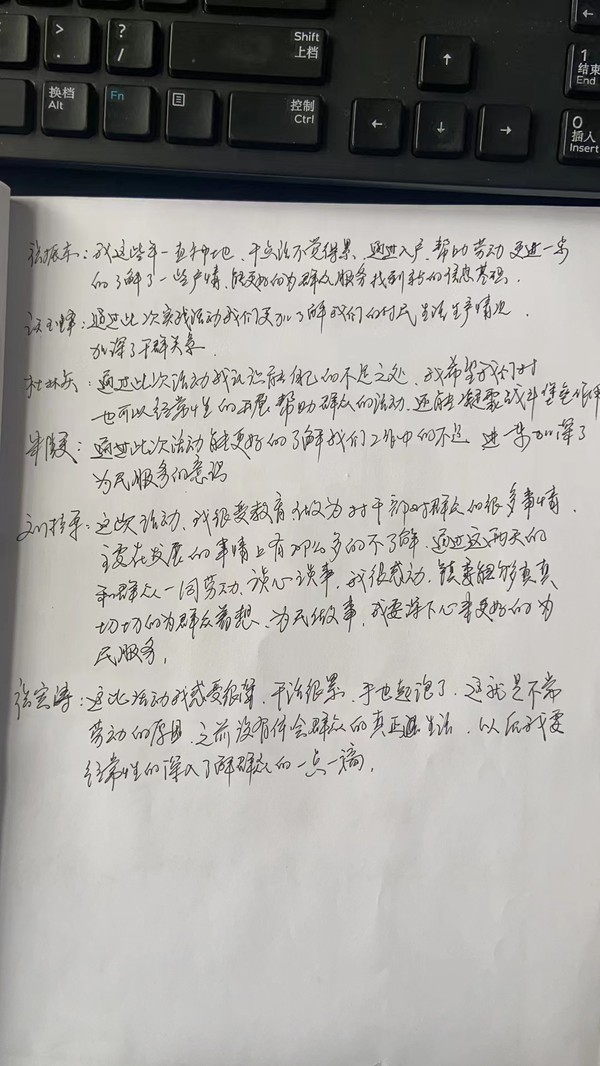 > .
? /
Shift 上档
↑
←
1 结束 End
换档 Alt
Fn
控制 Ctrl
← ↓ →
0 插入 Insert
张振东：我这些年一直种地、干点活不觉得累、通过入户、帮助劳动更进一步
的了解了一些户情，能更好的为群众服务找到新的信息基础．
通过此次实践活动我们更加了解我们的村民生活生产情况
加深了干群关系．
杜林兵：通过此次活动我认识到自己的不足之处，我希望我们村
也可以经常性的开展帮助群众的活动、还能凝聚战斗堡垒作用
通过此次活动能更好的了解我们工作中的不足 进一步加深了
为民服务的意识
刘桂平：这次活动、我很受教育，做为村干部对群众的很多事情．
主要在发展的事情上有那么多的不了解．通过这两天的
和群众一同劳动、谈心谈事，我很感动，镇委能够真真
切切的为群众着想、为民做事，我要静下心来更好的为
民服务．
张宝涛：这此活动我感受很深，干活很累，手也起泡了．这就是不常
劳动的原因，之前没有体会群众的真正 生活，以后我要
经常性的深入了解群众的一点一滴．